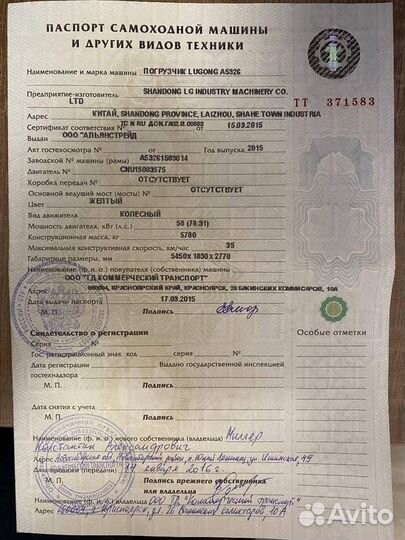 ПАСПОРТ САМОХОДНОЙ МАШИНЫ
И ДРУГИХ ВИДОВ ТЕХНИКИ
Наименование и марка машины ПОГРУЗЧИК LUGONG AS926
Предприятие-изготовитель SHANDONG LG INDUSTRY MACHINERY CO.
LTD
ТТ 371583
Адрес КИТАЙ, SHANDONG PROVINCE, LAIZHOU, SHAHE TOWN INDUSTRIA
Сертификат соответствия № от 15.03.2015
Выдан ООО "АЛЬЯНСТРЕЙД"
Акт гостехосмотра № от Год выпуска 2015
Заводской № машины (рамы) A93261503014
Двигатель № CNU15003575
Коробка передач № ОТСУТСТВУЕТ
Основной ведущий мост (мосты) № ОТСУТСТВУЕТ
Цвет ЖЕЛТЫЙ
Вид движителя КОЛЕСНЫЙ
Мощность двигателя, кВт (л.с.) 58 (78.91)
Конструкционная масса, кг 5780
Максимальная конструктивная скорость, км/час 35
Габаритные размеры, мм 5450x1830x2770
Наименование (ф. и о.) покупателя (собственника) машины
ООО "ТД КОММЕРЧЕСКИЙ ТРАНСПОРТ"
Адрес 660064, КРАСНОЯРСКИЙ КРАЙ, КРАСНОЯРСК, 26 БАКИНСКИХ КОМИССАРОВ, 10А
Дата выдачи паспорта 17.09.2015
М. П. Подпись
Свидетельство о регистрации Особые отметки
Серия №
Гос. регистрационный знак код серия №
Дата регистрации Выдано государственной инспекцией
гостехнадзора
М. П. Подпись
Дата снятия с учета
М. П. Подпись
Наименование (ф. и о.) нового собственника (владельца) Миллер
Константин Александрович
Адрес Новосибирская обл,
Дата продажи (передачи) января 2016 г.
М. П. Подпись прежнего собственника
или владельца
Наименование (ф. и о.) собственника (владельца) ООО ТД "Коммерческий транспорт"
Адрес г. Красноярск, ул. 26 Бакинских комиссаров, 10А
Avito